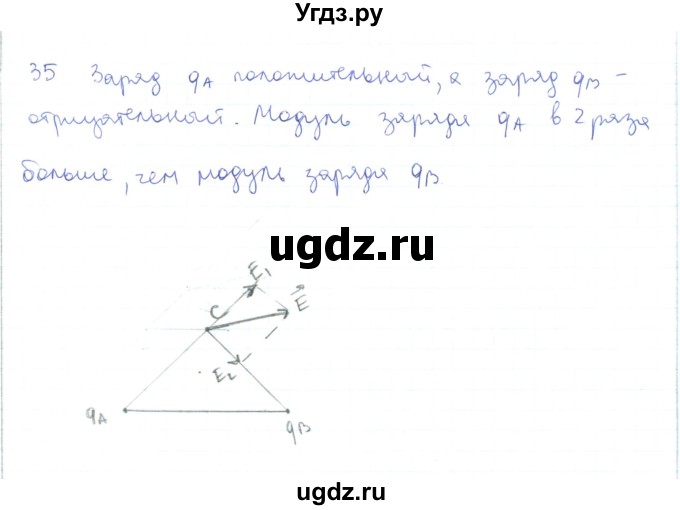 Угдз.ру
35 Заряд qA положительный, а заряд qB -
отрицательный. Модуль заряда qA в 2 раза
больше, чем модуль заряда qB.
ugdz.ru
E1
C
E
E2
qA
qB
ugdz.ru